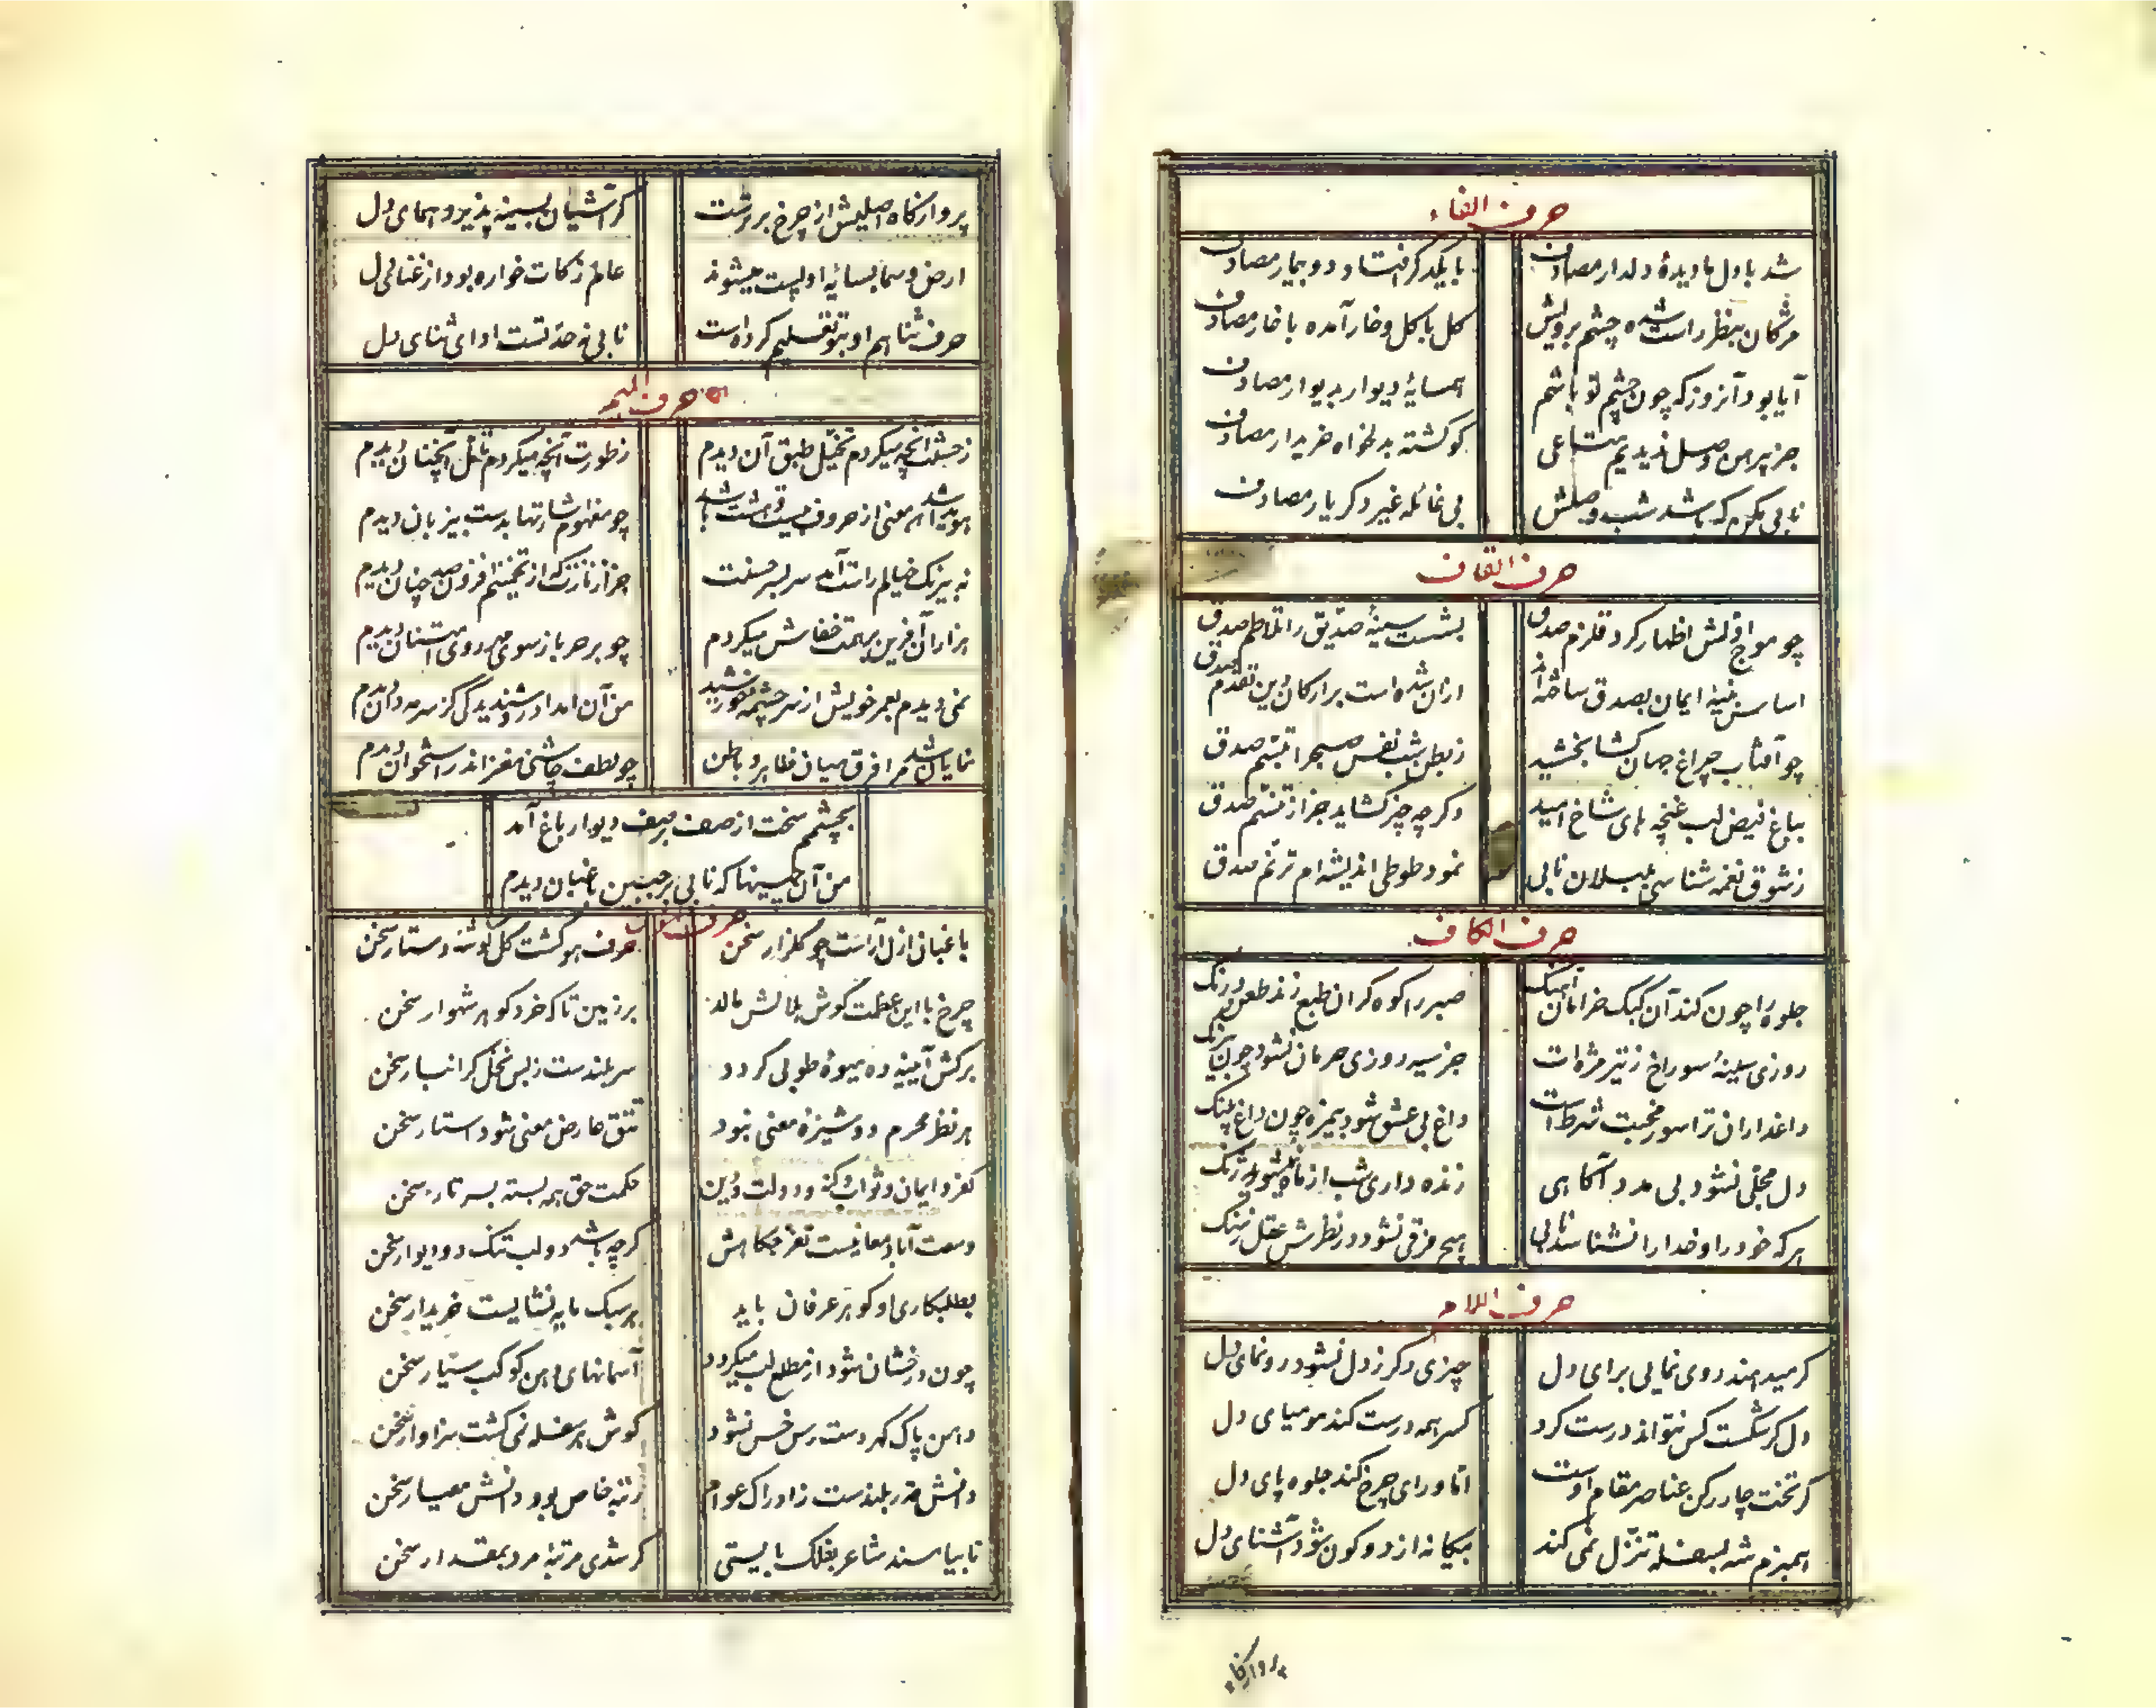 حرف الفاء
شد با دل ما دیدهٔ دلدار مصادف
با یکدگر افتاد دو بیمار مصادف
مژگان بنظر راست شده چشم برویش
کل با کل و خار آمده با خار مصادف
آیا بود آنروز که چون چشم تو باشم
همسایهٔ دیوار بدیوار مصادف
جز پیرهن وصل ندیدیم متاعی
کو کشته بدلخواه خریدار مصادف
نابی مکرم که باشد شب وصلش
بی غائله غیر دکر یار مصادف
حرف القاف
چو موج اولش اظهار کرد قلزم صدق
بشست سینهٔ صدیق را تلاطم صدق
اساس بنیهٔ ایمان بصدق ساخته اند
ازان شده است بر ارکان دین تقدم صدق
چو آفتاب چراغ جهان کشا بخشید
ز بطن شب نفس صبح را تبسم صدق
بباغ فیض لب غنچه های شاخ امید
دکر چه چیز کشاید جز از تنسم صدق
ز شوق نغمه شناسی بلبلان نابی
نمود طوطی اندیشه ام ترنم صدق
حرف الکاف
جلوه را چون کند آن کبک خرامان آهنک
صبر را کوه کران طبع زند طعن درنک
روزی سینهٔ سوراخ ز تیر مژه ات
جز سیه روزی حرمان نشود چون نیرنک
داغداران ترا سوز محبت شرط است
داغ بی عشق شود بیمزه چون داغ پلنک
دل مجلی نشود بی مدد آکاهی
زنده داری شب از ماه بشوید زنک
هر که خود را و خدا را نشناسد نابی
هیچ فرقی نشود در نظرش عقل ز بنک
حرف اللام
کر میدهند روی نمایی برای دل
چیزی دکر ز دل نشود رونمای دل
دل کر شکست کس نتواند درست کرد
کسر همه درست کند مومیای دل
کر تخت چار رکن عناصر مقام اوست
اما ورای چرخ کند جلوه پای دل
همبزم شه بسفله تنزل نمی کند
بیکانه از دو کون شود آشنای دل
پروازکاه
پروازکاه اصلیش از چرخ برترست
کر آشیان بسینه پذیرد همای دل
ارض و سما بسایهٔ او پست میشوند
عالم زکات خواره بود از غنای دل
حرف ثنا هم او بتو تسلیم کرده است
نابی نه حد تست ادای ثنای دل
حرف المیم
ز حسنت آنچه میکردم تخیل طبق آن دیدم
ز طورت آنچه میکردم تأمل آنچنان دیدم
هویدا شد همه معنی از حروف
چو مفهوم اشارتها بدست بیزبان دیدم
نه بیرنک خیالم راست آمد سر بسر حسنت
جز از نازت که از تخمینم افزون صد چنان دیدم
هزاران آفرین بر همت خفاش میکردم
چو بر هر باز سوی مهر روی امتنان دیدم
نمی دیدم بعمر خویش از سر چشمه خورشید
من آن امداد روشندیدکی کز سرمه دان دیدم
نمایان شد مرا فرق میان ظاهر و باطن
چو لطف چاشنی مغز اندر استخوان دیدم
بچشمم سخت از صف بر صف دیوار باغ آمد
من آن چینها که نابی بر جبین باغبان دیدم
حرف النون
باغبان ازل آراست چو کلزار سخن
حرف هو کشت کل کوشهٔ دستار سخن
چرخ با این عظمت کوش بمالش مالد
بر زمین تا که خرد کوهر شهوار سخن
برکش آیینه ده میوهٔ طوبی کردد
سر بلندست ز بس نخل کرانبار سخن
هر نظر محرم دوشیزهٔ معنی نبود
تتق عارض معنی شود استار سخن
کفر و ایمان و ثواب و کنه و دولت و دین
حکمت حق همه بسته بسر تار سخن
وسعت آباد معانیست تفرجکاهش
کرچه باشد دو لب تنک دو دیوار سخن
بطلبکاری او کوهر عرفان باید
هر سبک مایه نشایست خریدار سخن
چون درخشان شود از مطلع لب میکردد
آسمانهای دهن کوکب سیار سخن
دامن پاک کهر دست رس خس نشود
کوش هر سفله نمی کشت سزاوار سخن
دانش قدر بلندست ز ادراک عوام
رتبهٔ خاص بود دانش معیار سخن
نابیا مسند شاعر بفلک بایستی
کر شدی مرتبهٔ مرد بمقدار سخن